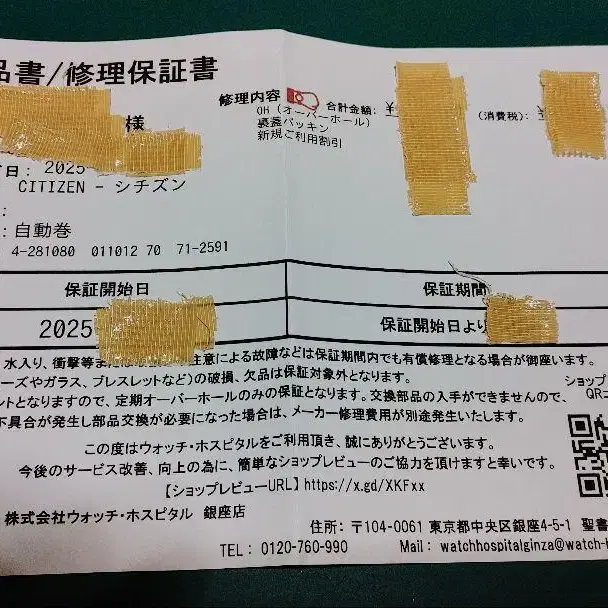 品書/修理保証書
様
修理内容
合計金額: ¥
(消費税):
OH (オーバーホール)
裏蓋パッキン
新規ご利用割引
日: 2025
CITIZEN - シチズン
:
: 自動巻
: 4-281080 011012 70 71-2591
保証開始日
保証期間
2025
保証開始日より
水入り、衝撃等また
注意による故障などは保証期間内でも有償修理となる場合が御座います。
ーズやガラス、ブレスレットなど)の破損、欠品は保証対象外となります。
ントとなりますので、定期オーバーホールのみの保証となります。交換部品の入手ができませんので、
不具合が発生し部品交換が必要になった場合は、メーカー修理費用が別途発生いたします。
ショップ
QRコ
この度はウォッチ・ホスピタルをご利用頂き、誠にありがとうございます。
今後のサービス改善、向上の為に、簡単なショップレビューのご協力を頂けますと幸いです。
【ショップレビューURL】https://x.gd/XKFxx
株式会社ウォッチ・ホスピタル 銀座店
住所: 〒104-0061 東京都中央区銀座4-5-1 聖書
TEL: 0120-760-990
Mail: watchhospitalginza@watch-h